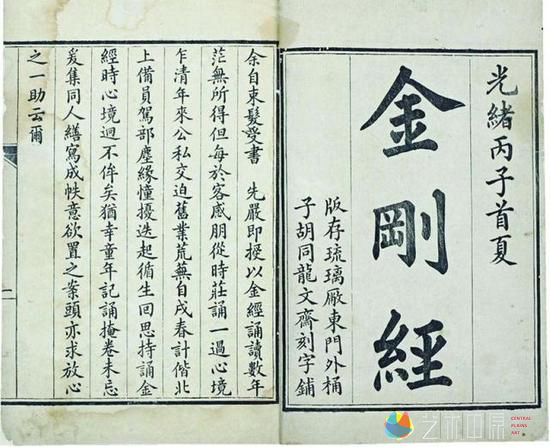 光緒丙子首夏
金剛經
版存琉璃厰東門外桶
子胡同龍文齋刻字鋪
余自束髮受書 先嚴即授以金經誦讀數年
茫無所得但每於客感朋從時莊誦一過心境
乍清年來公私交迫舊業荒蕪自戌春計偕北
上備員駕部塵緣憧擾迭起循生回思持誦金
經時心境迥不侔矣猶幸童年記誦掩卷未忘
爰集同人繕寫成帙意欲置之案頭亦求放心
之一助云爾
艺术中原
CENTRAL
PLAINS
ART